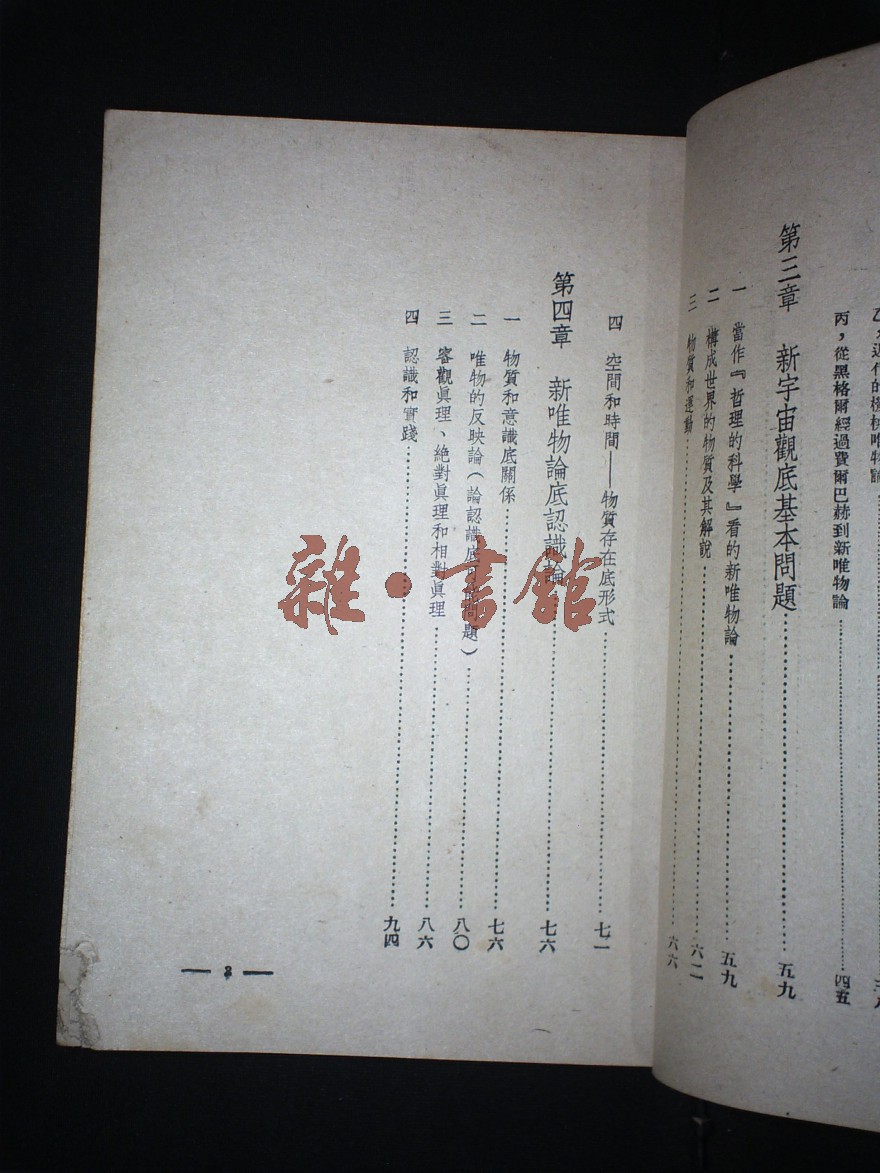 丙，從黑格爾經過費爾巴赫到新唯物論……四五
第三章　新宇宙觀底基本問題……五九
一　當作『哲理的科學』看的新唯物論……五九
二　構成世界的物質及其解說……六二
三　物質和運動……六六
四　空間和時間——物質存在底形式……七一
第四章　新唯物論底認識論……七六
一　物質和意識底關係……七六
二　唯物的反映論（論認識底可能問題）……八〇
三　客觀眞理、絕對眞理和相對眞理……八六
四　認識和實踐……九四
雜·書館